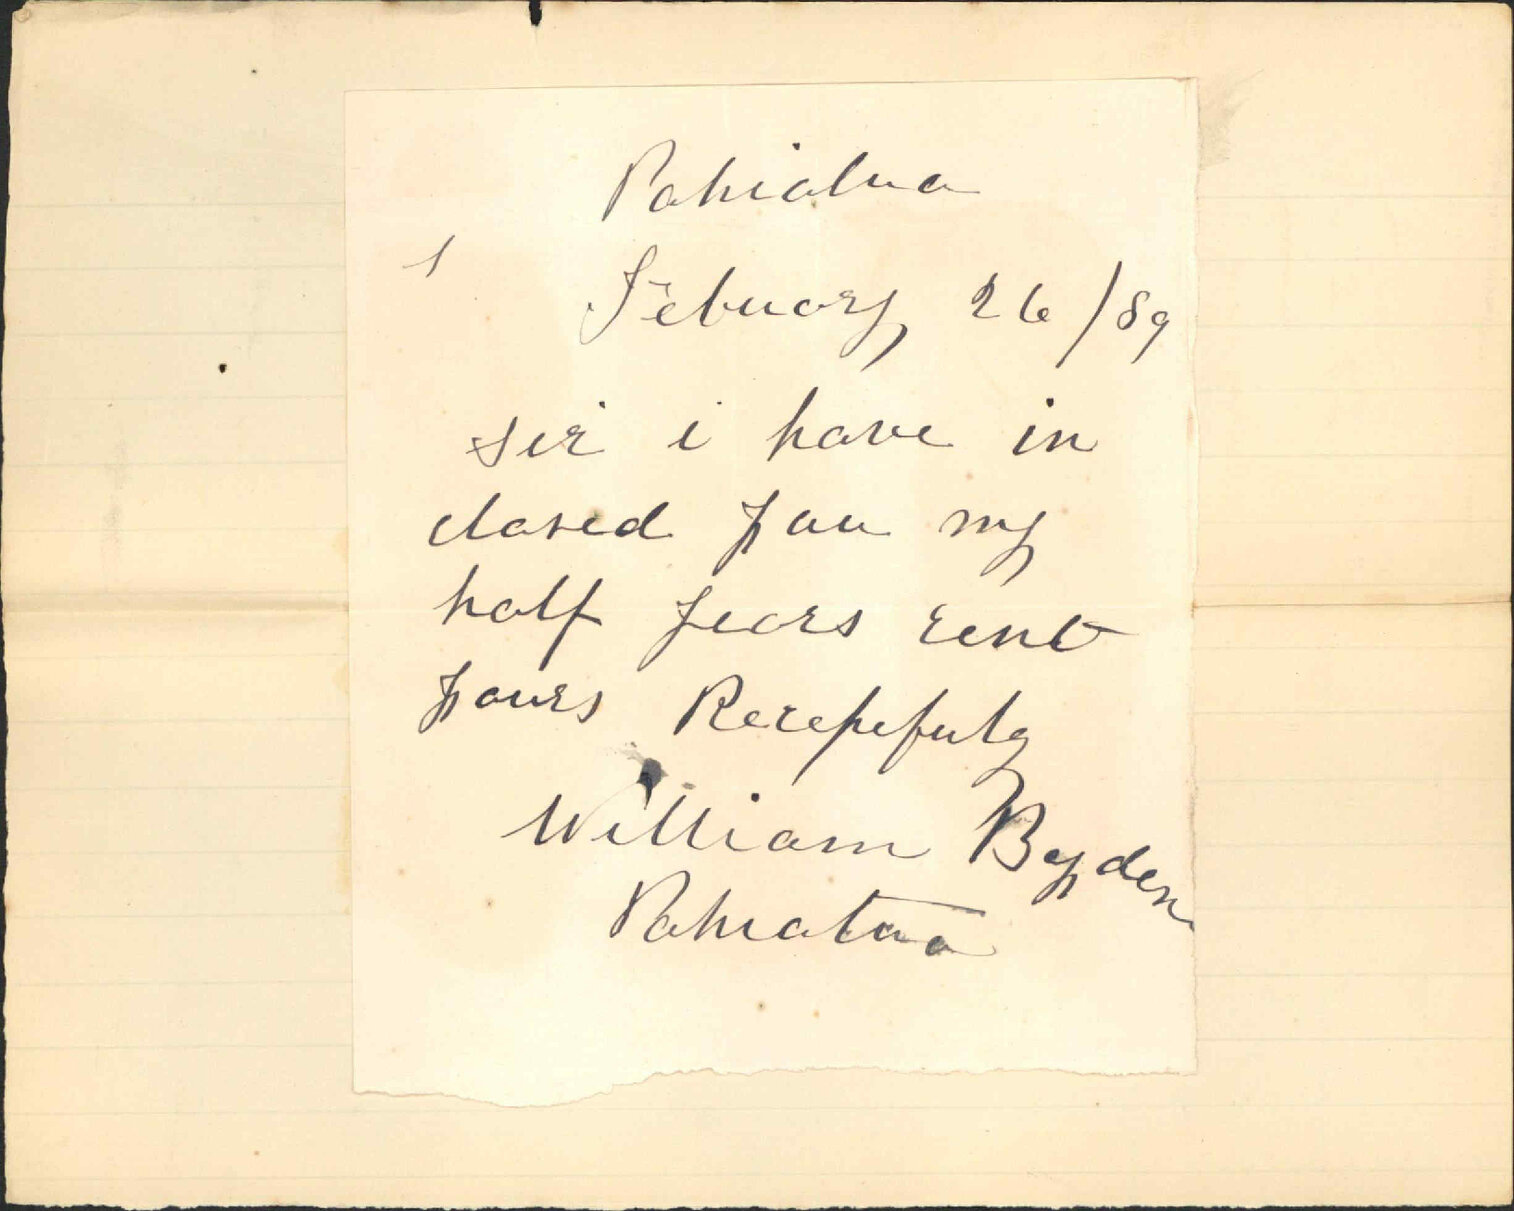 Pahiatua
Febuary 26/89
sir i have in
closed you my
half years rent
yours Recepefuly
William Bayden
Pahiatua